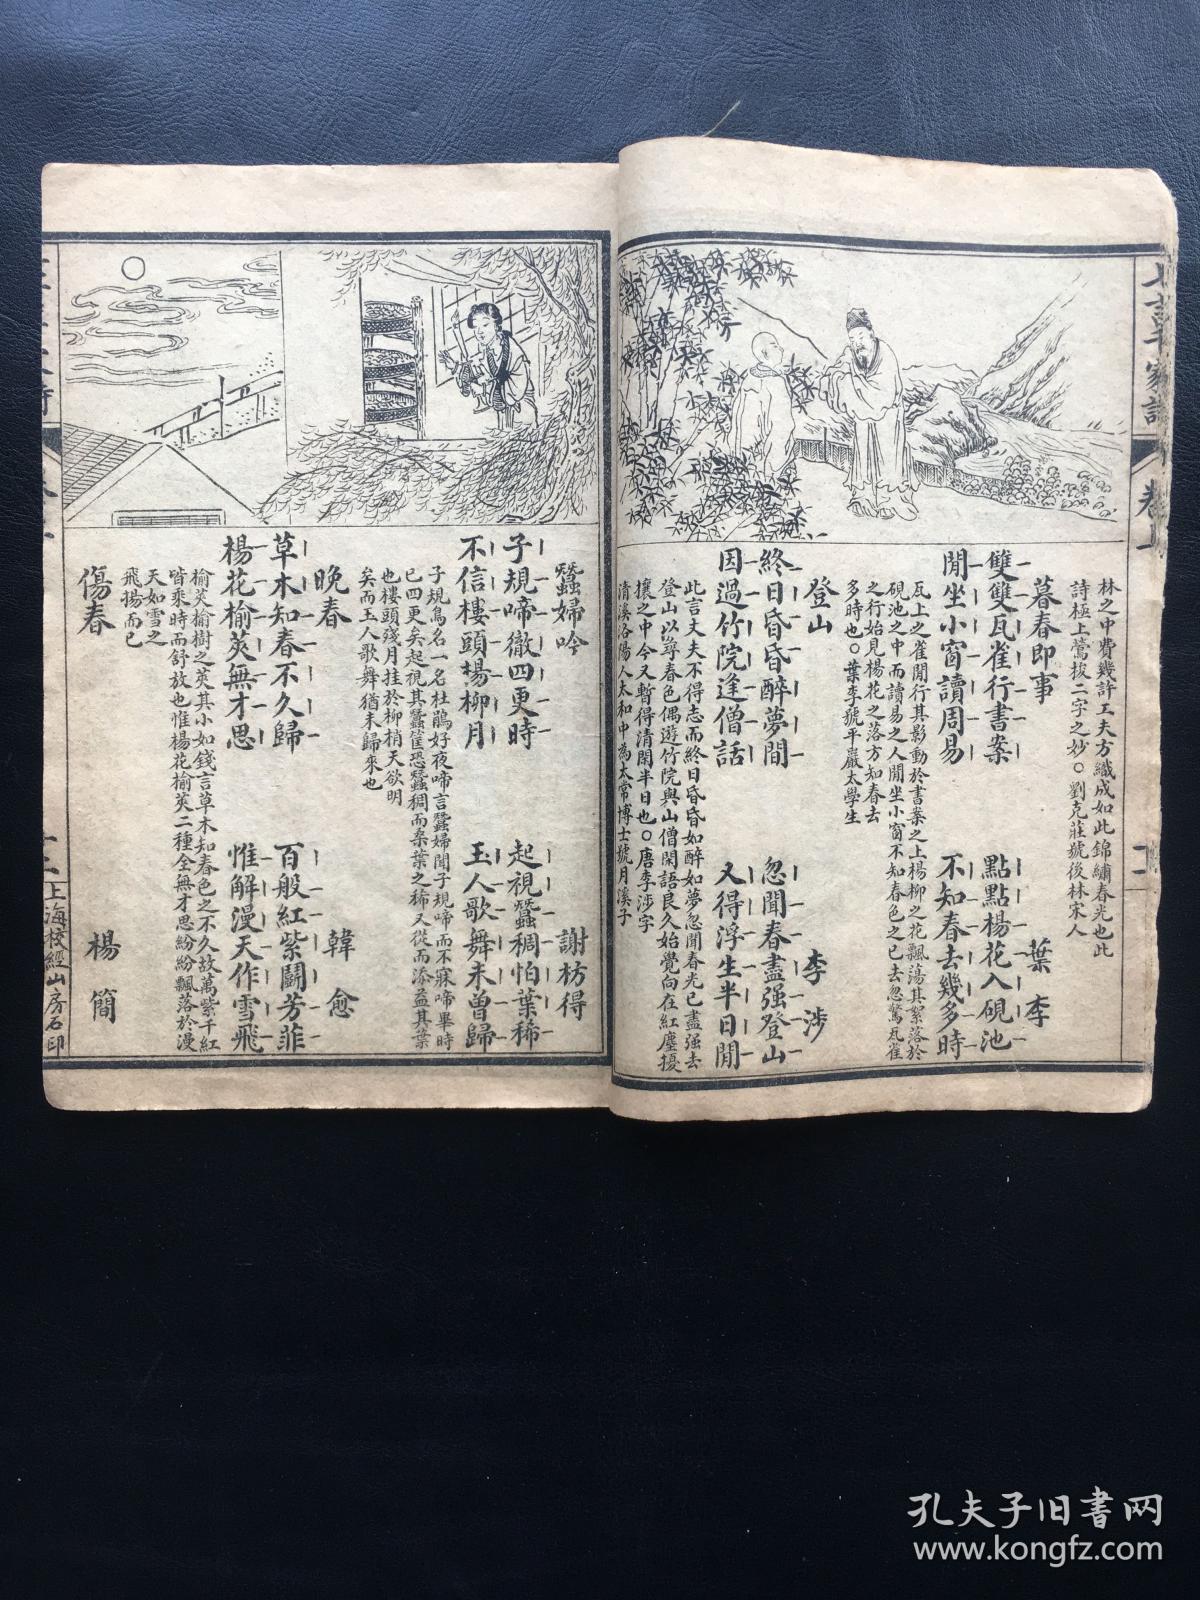 林之中費幾許工夫方織成如此錦繡春光也此
詩極上鶯拔二字之妙〇劉克莊號後林宋人
暮春即事 葉李
雙雙瓦雀行書案 點點楊花入硯池
閒坐小窗讀周易 不知春去幾多時
瓦上之雀閒行其影動於書案之上楊柳之花飄蕩其絮落於
硯池之中而讀易之人閒坐小窗不知春色之已去忽驚瓦雀
之行始見楊花之落方知春去
多時也〇葉李號平巖太學生
登山 李涉
終日昏昏醉夢間 忽聞春盡强登山
因過竹院逢僧話 又得浮生半日閒
此言丈夫不得志而終日昏昏如醉如夢忽聞春光已盡强去
登山以尋春色偶遊竹院與山僧閒語良久始覺向在紅塵擾
攘之中今又暫得清閒半日也〇唐李涉字
清溪洛陽人太和中為太常博士號月溪子
七言千家詩 卷上
蠶婦吟 謝枋得
子規啼徹四更時 起視蠶稠怕葉稀
不信樓頭楊柳月 玉人歌舞未曾歸
子規鳥名一名杜鵑好夜啼言蠶婦聞子規啼而不寐啼畢時
已四更矣起視其蠶筐恐蠶稠而桑葉之稀又從而添益其葉
也樓頭殘月挂於柳梢天欲明
矣而玉人歌舞猶未歸來也
晚春 韓愈
草木知春不久歸 百般紅紫鬪芳菲
楊花榆莢無才思 惟解漫天作雪飛
榆莢榆樹之莢其小如錢言草木知春色之不久故萬紫千紅
皆乘時而舒放也惟楊花榆莢二種全無才思紛紛飄落於漫
天如雪之
飛揚而已
傷春 楊簡
上海校經山房石印
孔夫子旧书网
www.kongfz.com